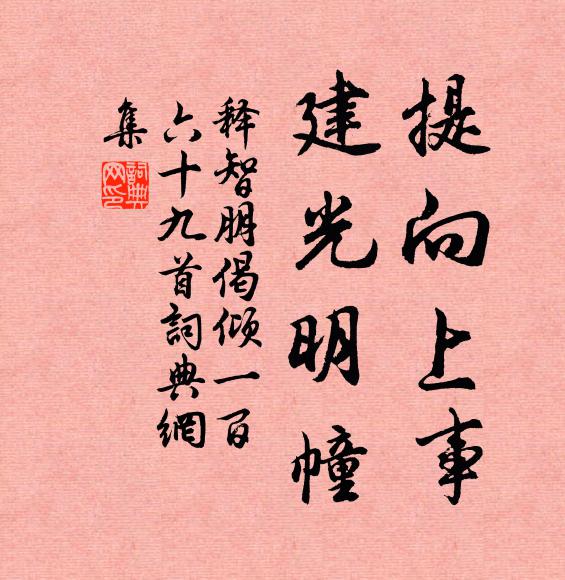 提向上事
建光明幢
释智朋偈倾一百
六十九首詞典網
集
詞典网印